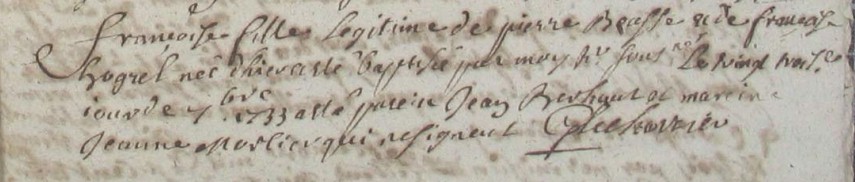 françoise fille Legitime de pierre Brasse & de françoise
hogrel neé d'hier a esté baptisée par moy sous Le vingt trois.e
jour de 7.bre 1733 a esté parein Jean Berhaut et mareine
Jeanne Morlier qui ne signent